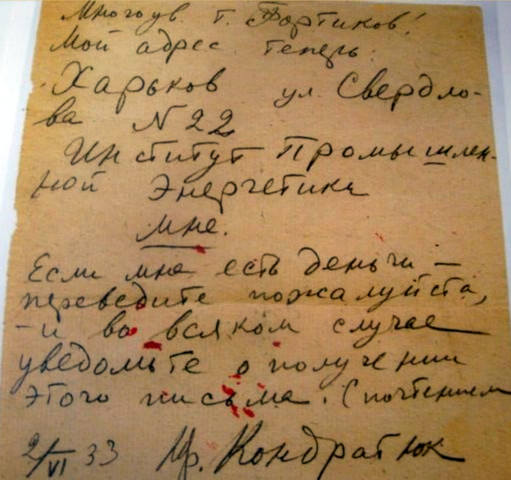 Многоув. т. Портиков!
Мой адрес теперь:
Харьков ул. Свердло-
ва N 22
Институт Промышлен-
ной Энергетики
мне.
Если мне есть деньги —
переведите пожалуйста,
- и во всяком случае
уведомьте о получении
этого письма. С почтением
2/VI 33 Юр. Кондратюк